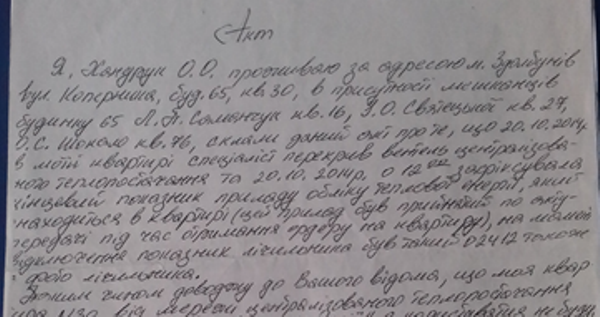 Акт
Я, Хандрук О.О. проживаю за адресою м. Здолбунів
вул. Коперника, буд. 65, кв. 30, в присутності мешканців
будинку 65 Л.П. Саманчук кв. 16, Я.О. Святецької кв. 27,
О.С. Шокало кв. 76, склали даний акт про те, що 20.10.2014р
в моїй квартирі спеціаліст перекрив вентель централізова-
ного теплопостачання та 20.10.2014р. о 12 зафіксувала
кінцевий показник приладу обліку теплової енергії, який
находиться в квартирі (цей прилад був прийнятий по акту
передачі під час отримання ордеру на квартиру), на момент
відключення показник лічильника був такий 02412
фото лічильника.
Таким чином доводжу до Вашого відома, що моя квар
№30 від мережі централізованого теплопостачання